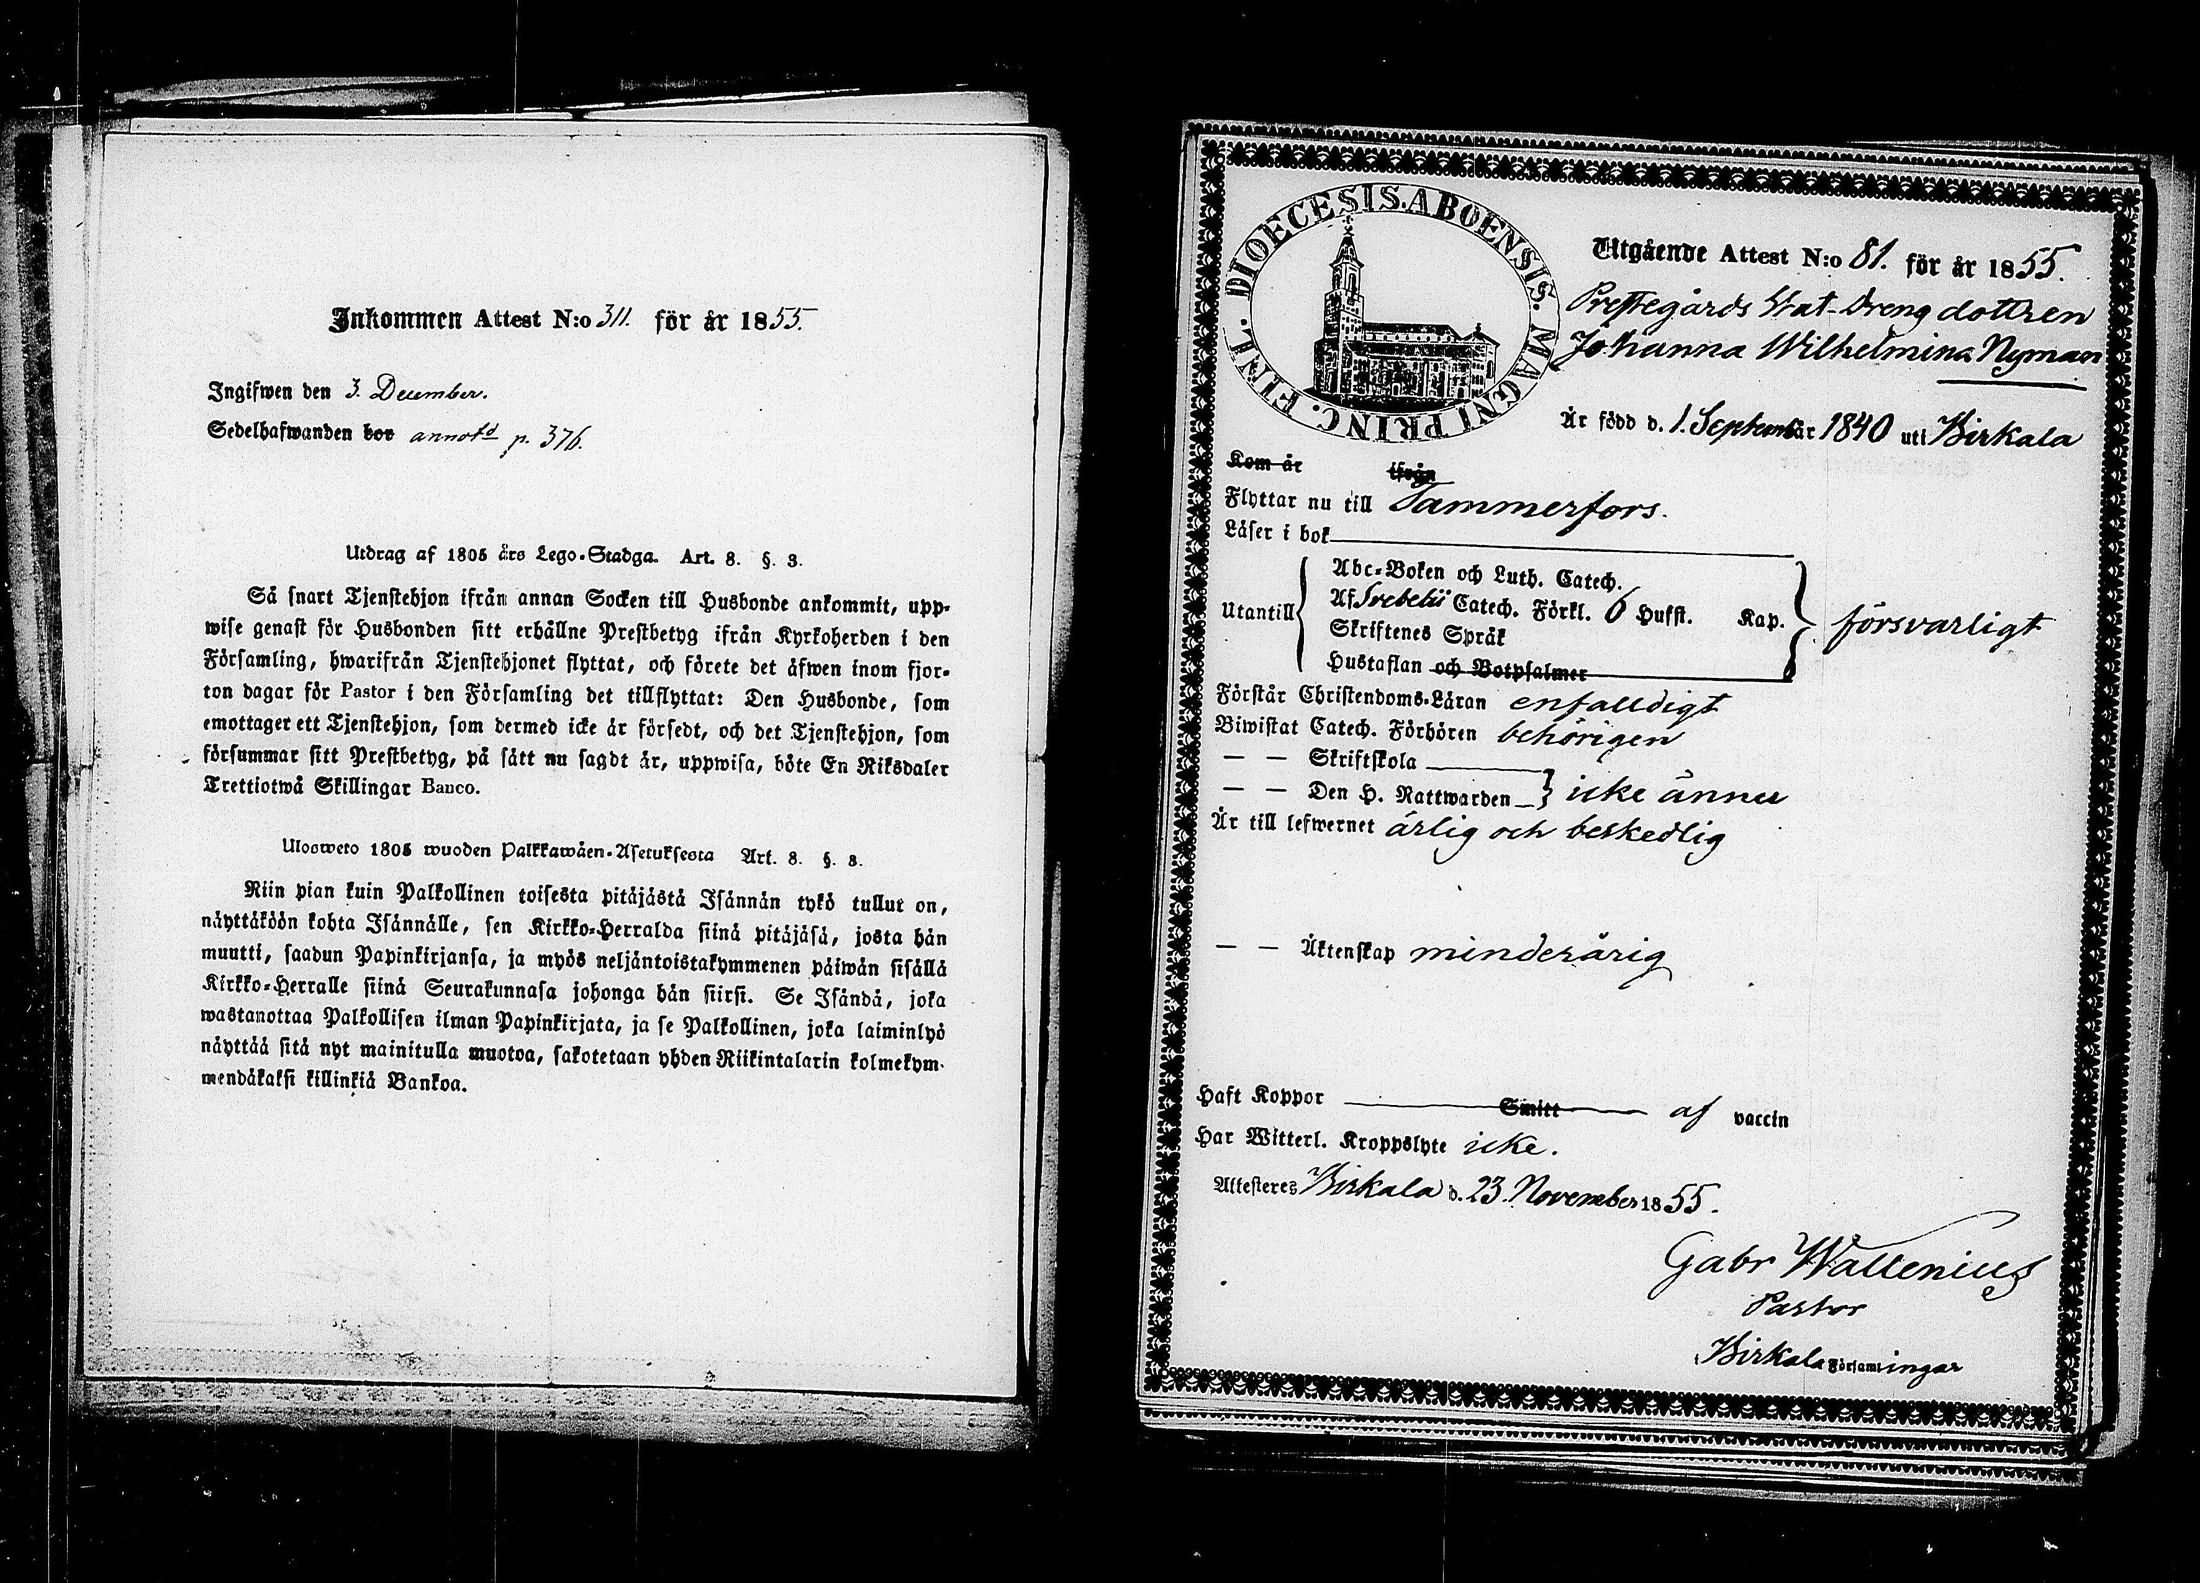 Inkommen Attest N:o 311. för år 1855.
Ingifwen den 3. December.
Sedelhafwanden bor annotd p. 376.
Utdrag af 1805 års Lego-Stadga. Art. 8. §. 3.
Så snart Tjenstehjon ifrån annan Socken till Husbonde ankommit, upp-
wise genast för Husbonden sitt erhållne Prestbetyg ifrån Kyrkoherden i den
Församling, hwarifrån Tjenstehjonet flyttat, och förete det äfwen inom fjor-
ton dagar för Pastor i den Församling det tillflyttat: Den Husbonde, som
emottager ett Tjenstehjon, som dermed icke är försedt, och det Tjenstehjon, som
försummar sitt Prestbetyg, på sätt nu sagdt är, uppwisa, böte En Riksdaler
Trettiotwå Skillingar Banco.
Ulosweto 1805 wuoden Palkkawäen-Asetuksesta Art. 8. §. 3.
Niin pian kuin Palkollinen toisesta pitäjästä Isännän tykö tullut on,
näyttäköön kohta Isännälle, sen Kirkko-Herralda siinä pitäjäsä, josta hän
muutti, saadun Papinkirjansa, ja myös neljäntoistakymmenen päiwän sisällä
Kirkko-Herralle siinä Seurakunnasa johonga hän siirsi. Se Isändä, joka
wastanottaa Palkollisen ilman Papinkirjata, ja se Palkollinen, joka laiminlyö
näyttää sitä nyt mainitulla muotoa, sakotetaan yhden Riikintalarin kolmekym-
mendäkaksi killinkiä Bankoa.
DIOECESIS. ABOENSIS. MAGNI PRINC. FINL.
Utgående Attest N:o 81. för år 1855.
Prestegårds Stat-Dreng dottren
Johanna Wilhelmina Nyman
Är född d. 1. September 1840 uti Birkala
Kom år ifrån
Flyttar nu till Tammerfors.
Läser i bok
Utantill
Abc-Boken och Luth. Catech.
Af Svebelii Catech. Förkl. 6 Hufst. Kap.
Skriftenes Språk
Hustaflan och Botpsalmer
försvarligt
Förstår Christendoms-Läran enfalldigt
Biwistat Catech. Förhören behörigen
— — Skriftskola
— — Den H. Nattwarden icke ännu
Är till lefwernet ärlig och beskedlig
— — Äktenskap minderårig
Haft Koppor Smitt af vaccin
Har Witterl. Kroppslyte icke.
Attesteres Birkala d. 23. November 1855.
Gabr Wallenius
Pastor
Birkala Församlingar